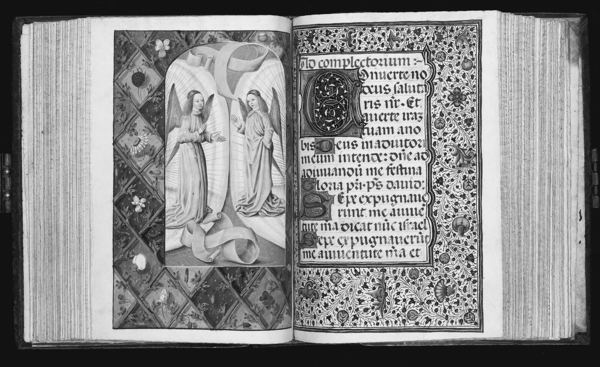 Ad complectorium :-
Onuerte no
deus saluta
ris nr̄ · Et
auerte iraȝ
tuam a no
bis Deus in adiutori
meum intende: dn̄e ad
adiuuandū me festina
Gloria pr̄i. ps̄ dauid:
Sepe expugnaue
runt me a iuuē
tute mea dicat nūc israel
Sepe expugnauerūt
me a iuuentute m̄a et